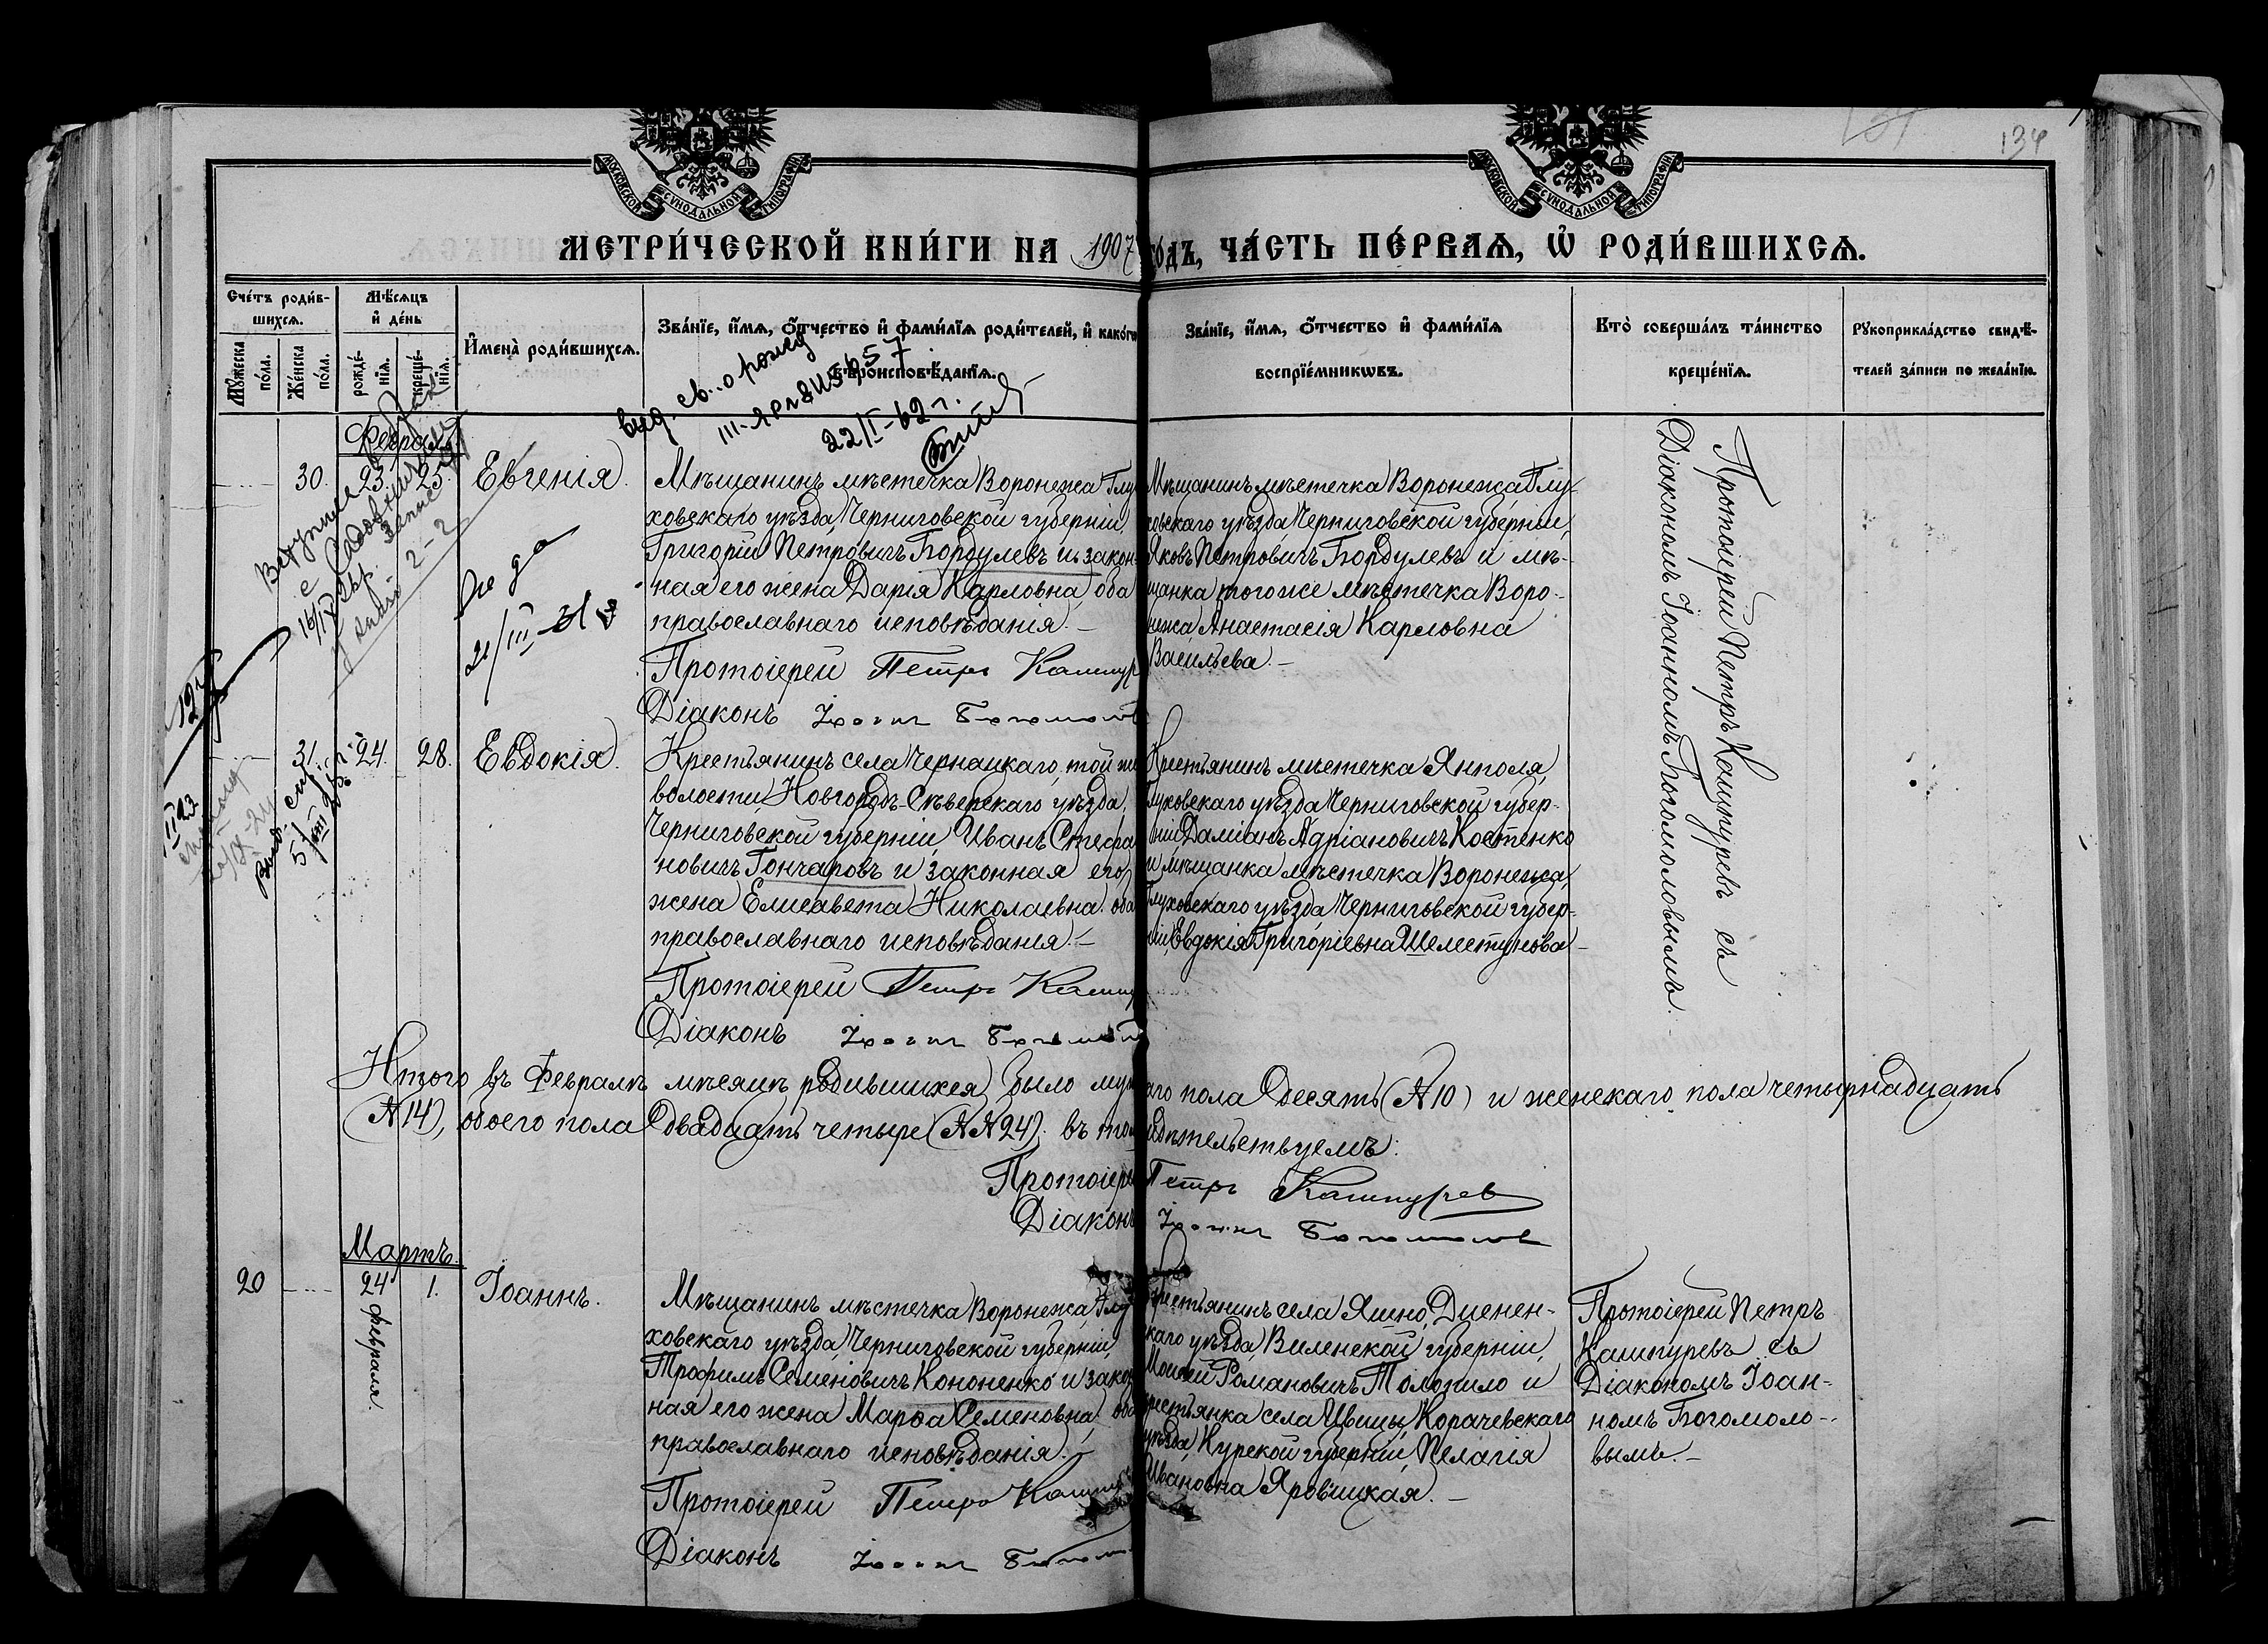 134
МОСКОВСКОЙ СѴНОДАЛЬНОЙ ТИПОГРАФІИ
МОСКОВСКОЙ СѴНОДАЛЬНОЙ ТИПОГРАФІИ
МЕТРИ́ЧЕСКОЙ КНИ́ГИ НА 1907 ГОДЪ, ЧА́СТЬ ПЕ́РВАѦ, Ѡ҆ РОДИ́ВШИХСѦ.
Сче́тъ роди́в-
шихсѧ.
Мꙋ́жеска по́ла.
Же́нска по́ла.
Мѣ́сѧцъ и҆ де́нь
рожде́-
нїѧ.
креще́-
нїѧ.
И҆мена̀ роди́вшихсѧ.
Зва́нїе, и҆́мѧ, ѻ҆́тчество и҆ фами́лїѧ роди́телей, и҆ како́гѡ
вѣроисповѣ́данїѧ.
Зва́нїе, и҆́мѧ, ѻ҆́тчество и҆ фами́лїѧ
воспрїе́мникѡвъ.
Кто̀ соверша́лъ та́инство
креще́нїѧ.
Рꙋкоприкла́дство свидѣ́-
телей за́писи по жела́нїю.
выд. св. о рожд
22/I-62 г.
Февраль
30. 23. 25. Евгенія.
Мѣщанинъ мѣстечка Воронежа Глу
ховскаго уѣзда Черниговской губерніи,
Григорій Петровичъ Бордулевъ и закон-
ная его жена Дарія Карловна, оба
православнаго исповѣданія. –
Протоіерей Петръ Кашпур
Діаконъ Іоаннъ Богомолов
Мѣщанинъ мѣстечка Воронежа Глу-
ховскаго уѣзда Черниговской губерніи,
Яковъ Петровичъ Бордулевъ и мѣ-
щанка того же мѣстечка Воро-
нежа, Анастасія Карловна
Васильева. –
Протоіерей Петръ Кашпуревъ съ
Діакономъ Іоанномъ Богомоловымъ. –
31. 24. 28. Евдокія.
Крестьянинъ села Чернацкаго, той же
волости, Новгородъ-Сѣверскаго уѣзда,
Черниговской губерніи, Иванъ Стефа
новичъ Гончаровъ и законная его
жена Елисавета Николаевна, оба
православнаго исповѣданія. –
Протоіерей Петръ Кашпу
Діаконъ Іоаннъ Богомолов
Крестьянинъ мѣстечка Янполя,
Глуховскаго уѣзда Черниговской губер-
ніи, Даміанъ Адріановичъ Костенко
и мѣщанка мѣстечка Воронежа,
Глуховскаго уѣзда Черниговской губер-
ніи, Евдокія Григоріевна Шелестунова –
Итого въ Февралѣ мѣсяцѣ родившихся было муж аго пола десять (№ 10) и женскаго пола четырнадцать
(№ 14), обоего пола двадцать четыре (№№ 24). въ том свидѣтельствуемъ:
Протоіерей Петръ Кашпурев
Діаконъ Іоаннъ Богомолов
Мартъ.
20 24 февраля. 1. Іоаннъ.
Мѣщанинъ мѣстечка Воронежа, Глу
ховскаго уѣзда, Черниговской губерніи,
Трофимъ Семеновичъ Кононенко и закон
ная его жена Марѳа Семеновна, оба
православнаго исповѣданія. –
Протоіерей Петръ Кашпу
Діаконъ Іоаннъ Богомо
Крестьянинъ села Яшно, Дисен-
скаго уѣзда, Виленской губерніи,
Моисей Романовичъ Толопило и
крестьянка села Ивицы, Корачевскаго
уѣзда, Курской губерніи, Пелагія
Ивановна Яровицкая. –
Протоіерей Петръ
Кашпуревъ съ
Діакономъ Іоан-
номъ Богомоло-
вымъ. –